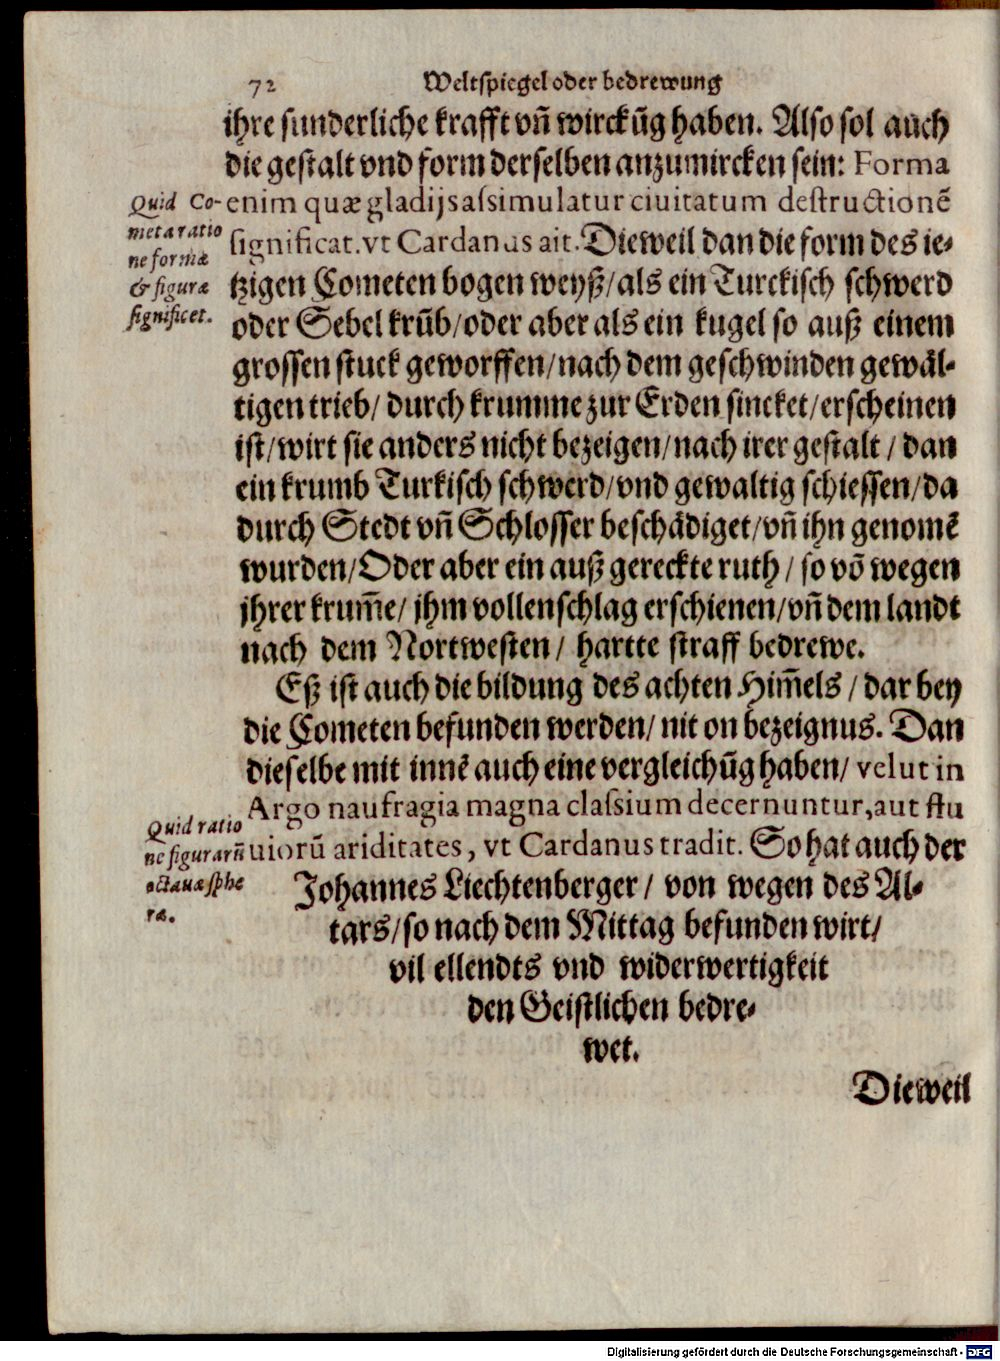 72 Weltspiegel oder bedrewung
ihre sunderliche krafft vñ wirckũg haben. Also sol auch
die gestalt vnd form derselben anzumircken sein: Forma
Quid Co-
enim quæ gladij sassimulatur ciuitatum destructionẽ
meta ratio
significat. vt Cardanus ait. Dieweil dan die form des ie-
ne formæ
& figuræ
tzigen Cometen bogen weyß/als ein Turckisch schwerd
significet.
oder Sebel krũb/oder aber als ein kugel so auß einem
grossen stuck geworffen/nach dem geschwinden gewäl-
tigen trieb/ durch krumme zur Erden sincket/erscheinen
ist/wirt sie anders nicht bezeigen/nach irer gestalt / dan
ein krumb Turkisch schwerd/vnd gewaltig schiessen/da
durch Stedt vñ Schlosser beschädiget/vñ ihn genomẽ
wurden/Oder aber ein auß gereckte ruth / so võ wegen
jhrer krum̃e/ jhm vollenschlag erschienen/vñ dem landt
nach dem Nortwesten/ hartte straff bedrewe.
Eß ist auch die bildung des achten Him̃els / dar bey
die Cometen befunden werden/ nit on bezeignus. Dan
dieselbe mit innẽ auch eine vergleichũg haben/ velut in
Argo naufragia magna classium decernuntur, aut flu
Quid ratio
uiorũ ariditates, vt Cardanus tradit. So hat auch der
ne figurarũ
octauæ sphe
ræ.
Johannes Liechtenberger / von wegen des Al-
tars/so nach dem Mittag befunden wirt/
vil ellendts vnd widerwertigkeit
den Geistlichen bedre-
wet.
Dieweil
Digitalisierung gefördert durch die Deutsche Forschungsgemeinschaft - DFG